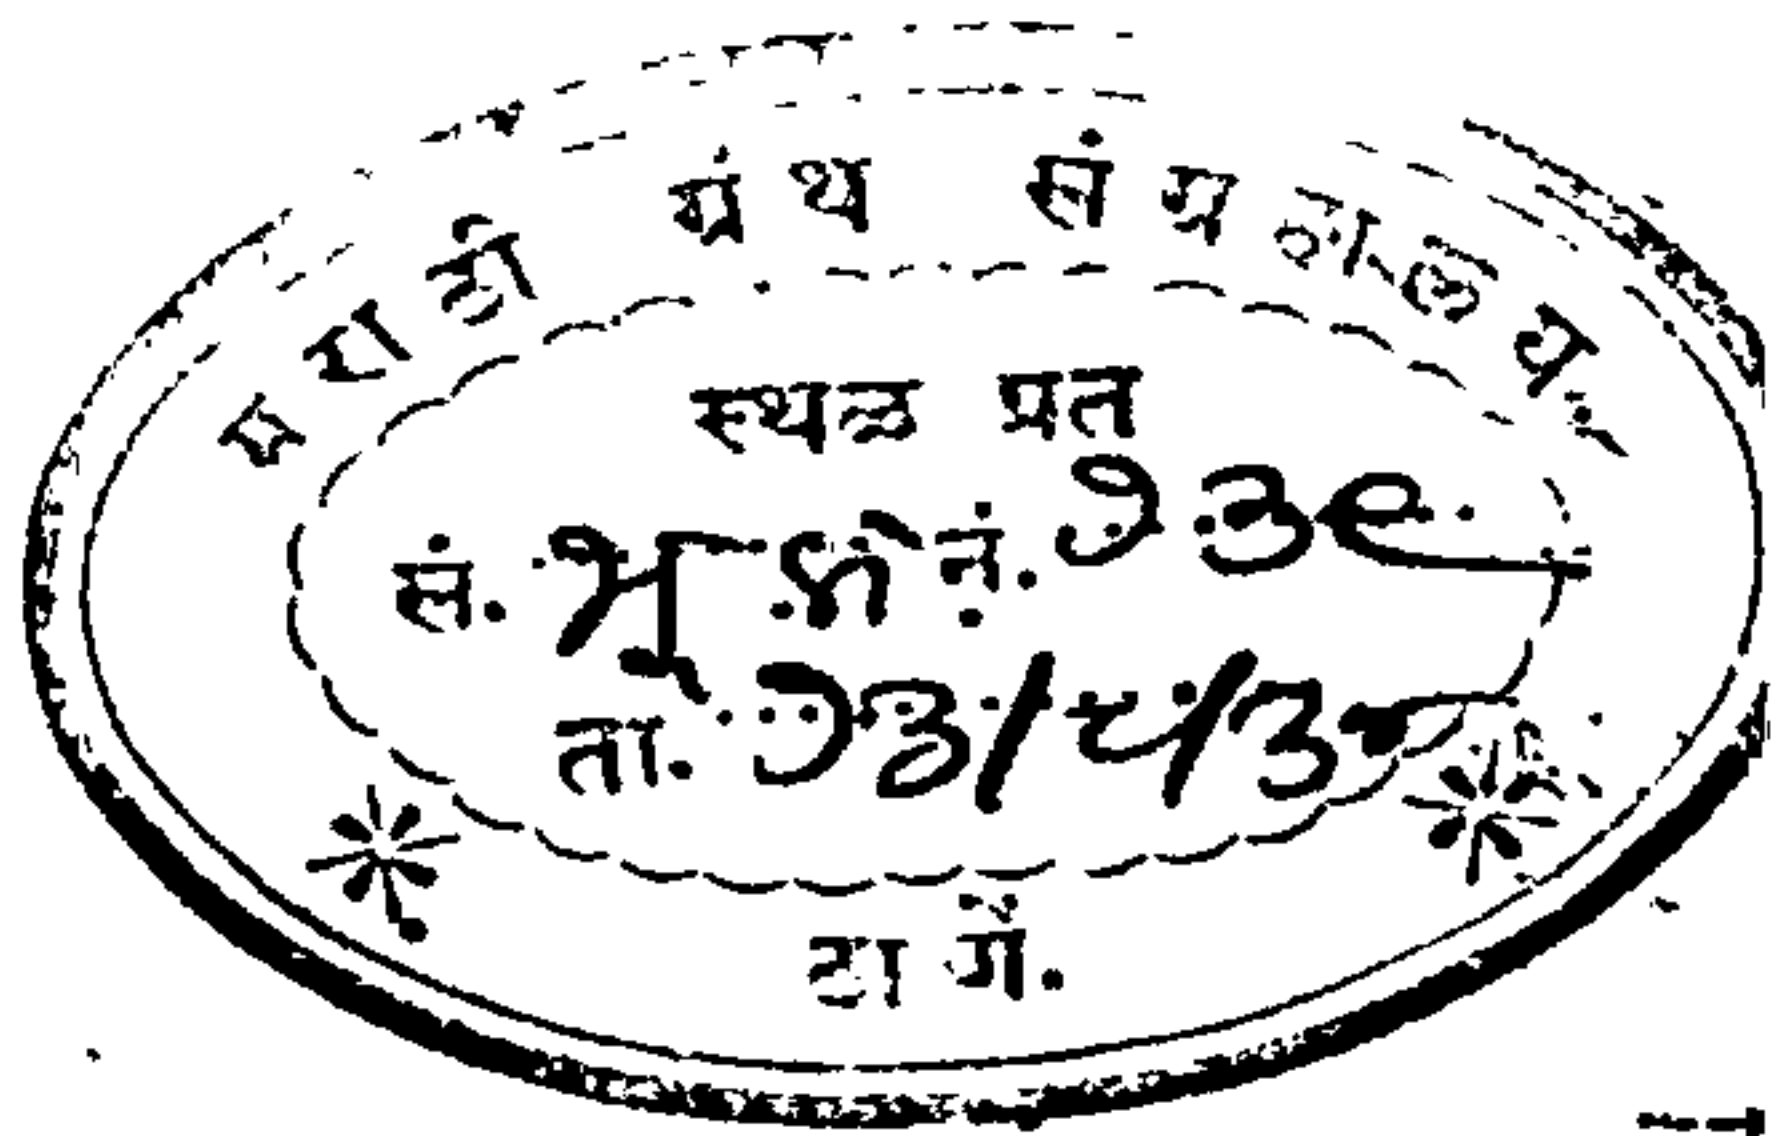 मराठी ग्रंथ संग्रहालय.
स्थळ प्रत
सं. नं. १३९
ता. १३/५/३०
ठाणें.